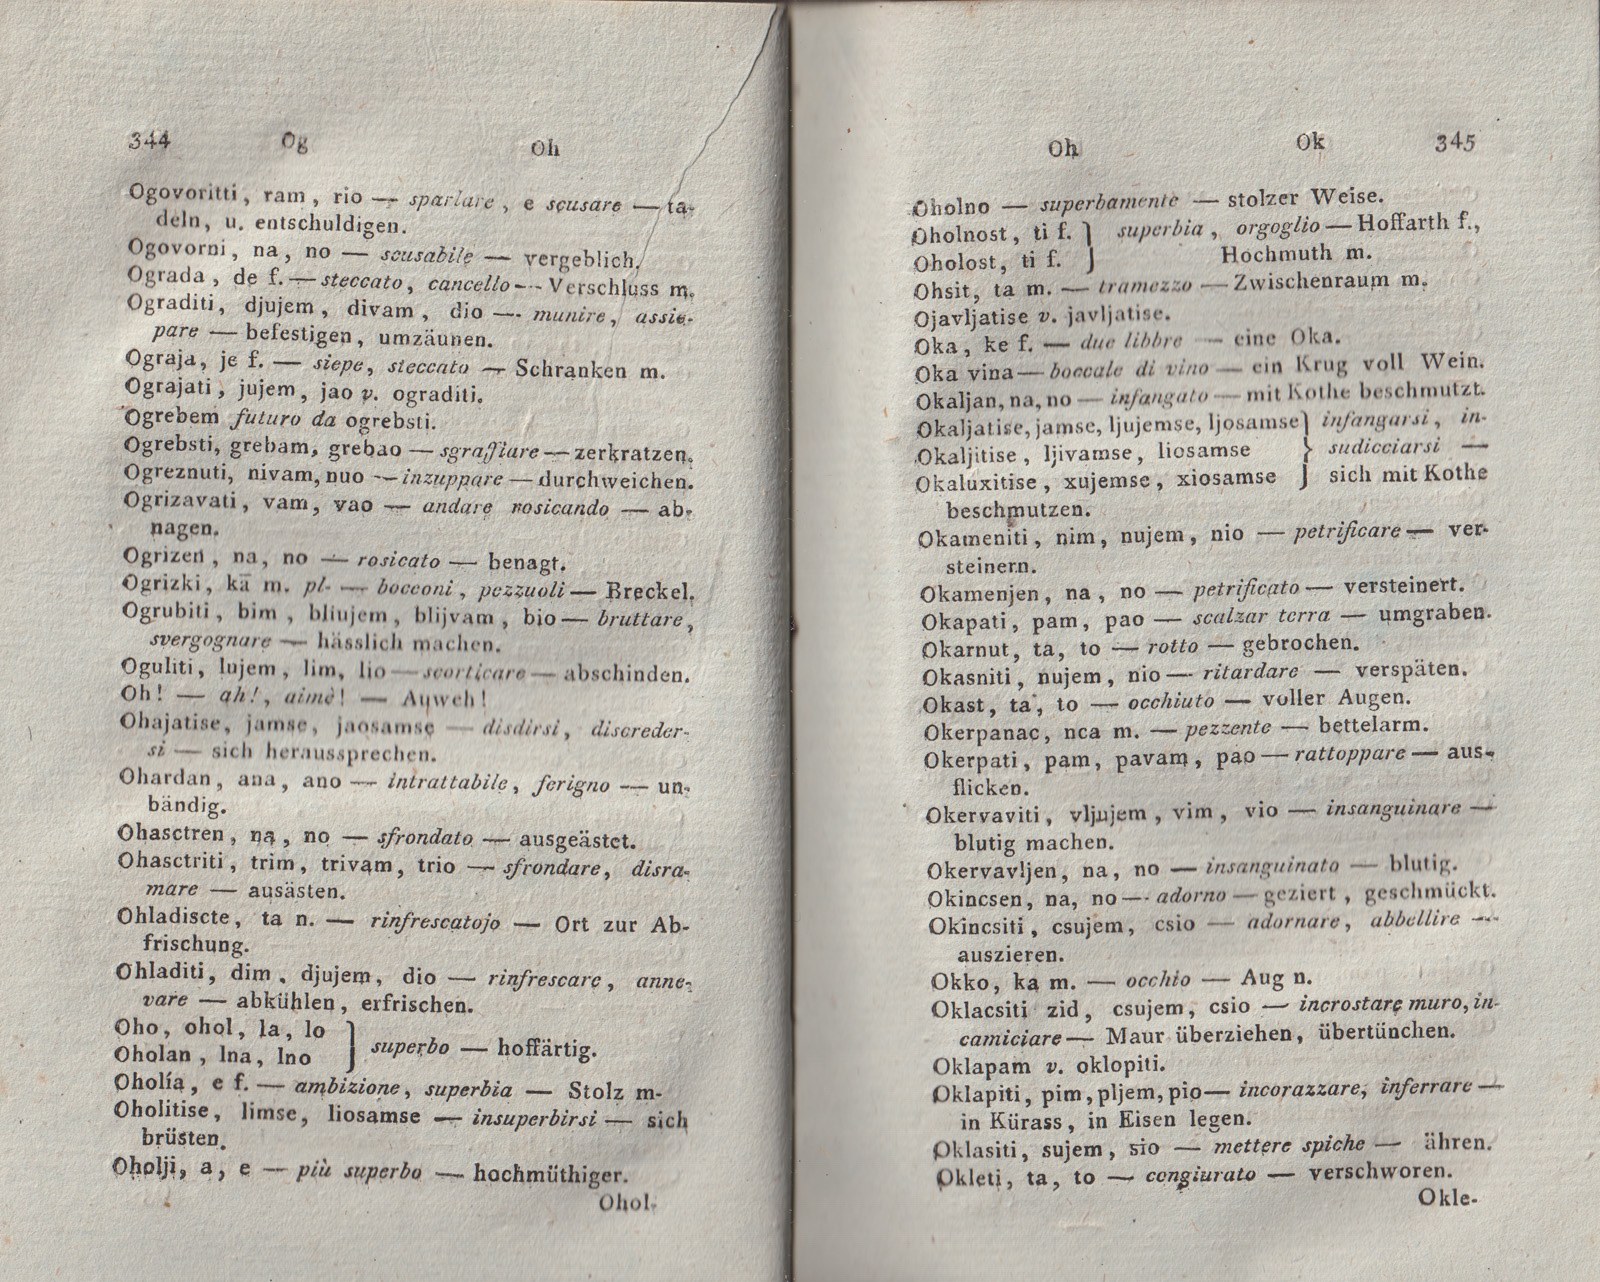 344 Og Oh
Ogovoritti, ram, rio — sparlare, e scusare — ta-
deln, u. entschuldigen.
Ogovorni, na, no — scusabile — vergeblich.
Ograda, de f. — steccato, cancello — Verschluss m.
Ograditi, djujem, divam, dio — munire, assie-
pare — befestigen, umzäunen.
Ograja, je f. — siepe, steccato — Schranken m.
Ograjati, jujem, jao v. ograditi.
Ogrebem futuro da ogrebsti.
Ogrebsti, grebam, grebao — sgraffiare — zerkratzen.
Ogreznuti, nivam, nuo — inzuppare — durchweichen.
Ogrizavati, vam, vao — andare rosicando — ab-
nagen.
Ogrizen, na, no — rosicato — benagt.
Ogrizki, kä m. pl. — bocconi, pezzuoli — Breckel.
Ogrubiti, bim, bliujem, blijvam, bio — bruttare,
svergognare — hässlich machen.
Oguliti, lujem, lim, lio — scorticare — abschinden.
Oh! — ah!, aimè! — Auweh!
Ohajatise, jamse, jaosamse — disdirsi, discreder-
si — sich heraussprechen.
Ohardan, ana, ano — intrattabile, ferigno — un-
bändig.
Ohasctren, na, no — sfrondato — ausgeästet.
Ohasctriti, trim, trivam, trio — sfrondare, disra-
mare — ausästen.
Ohladiscte, ta n. — rinfrescatojo — Ort zur Ab-
frischung.
Ohladiti, dim, djujem, dio — rinfrescare, anne-
vare — abkühlen, erfrischen.
Oho, ohol, la, lo } superbo — hoffärtig.
Oholan, lna, lno
Oholía, e f. — ambizione, superbia — Stolz m-
Oholitise, limse, liosamse — insuperbirsi — sich
brüsten.
Oholji, a, e — più superbo — hochmüthiger.
Ohol-
Oh Ok 345
Oholno — superbamente — stolzer Weise.
Oholnost, ti f. } superbia, orgoglio — Hoffarth f.,
Oholost, ti f. } Hochmuth m.
Ohsit, ta m. — tramezzo — Zwischenraum m.
Ojavljatise v. javljatise.
Oka, ke f. — due libbre — eine Oka.
Oka vina — boccale di vino — ein Krug voll Wein.
Okaljan, na, no — infangato — mit Kothe beschmutzt.
Okaljatise, jamse, ljujemse, ljosamse } infangarsi, in-
Okaljitise, ljivamse, liosamse } sudicciarsi —
Okaluxitise, xujemse, xiosamse } sich mit Kothe
beschmutzen.
Okameniti, nim, nujem, nio — petrificare — ver-
steinern.
Okamenjen, na, no — petrificato — versteinert.
Okapati, pam, pao — scalzar terra — umgraben.
Okarnut, ta, to — rotto — gebrochen.
Okasniti, nujem, nio — ritardare — verspäten.
Okast, ta, to — occhiuto — voller Augen.
Okerpanac, nca m. — pezzente — bettelarm.
Okerpati, pam, pavam, pao — rattoppare — aus-
flicken.
Okervaviti, vljujem, vim, vio — insanguinare —
blutig machen.
Okervavljen, na, no — insanguinato — blutig.
Okincsen, na, no — adorno — geziert, geschmückt.
Okincsiti, csujem, csio — adornare, abbellire —
auszieren.
Okko, ka m. — occhio — Aug n.
Oklacsiti zid, csujem, csio — incrostare muro, in-
camiciare — Maur überziehen, übertünchen.
Oklapam v. oklopiti.
Oklapiti, pim, pljem, pio — incorazzare, inferrare —
in Kürass, in Eisen legen.
Oklasiti, sujem, sio — mettere spiche — ähren.
Okleti, ta, to — congiurato — verschworen.
Okle-